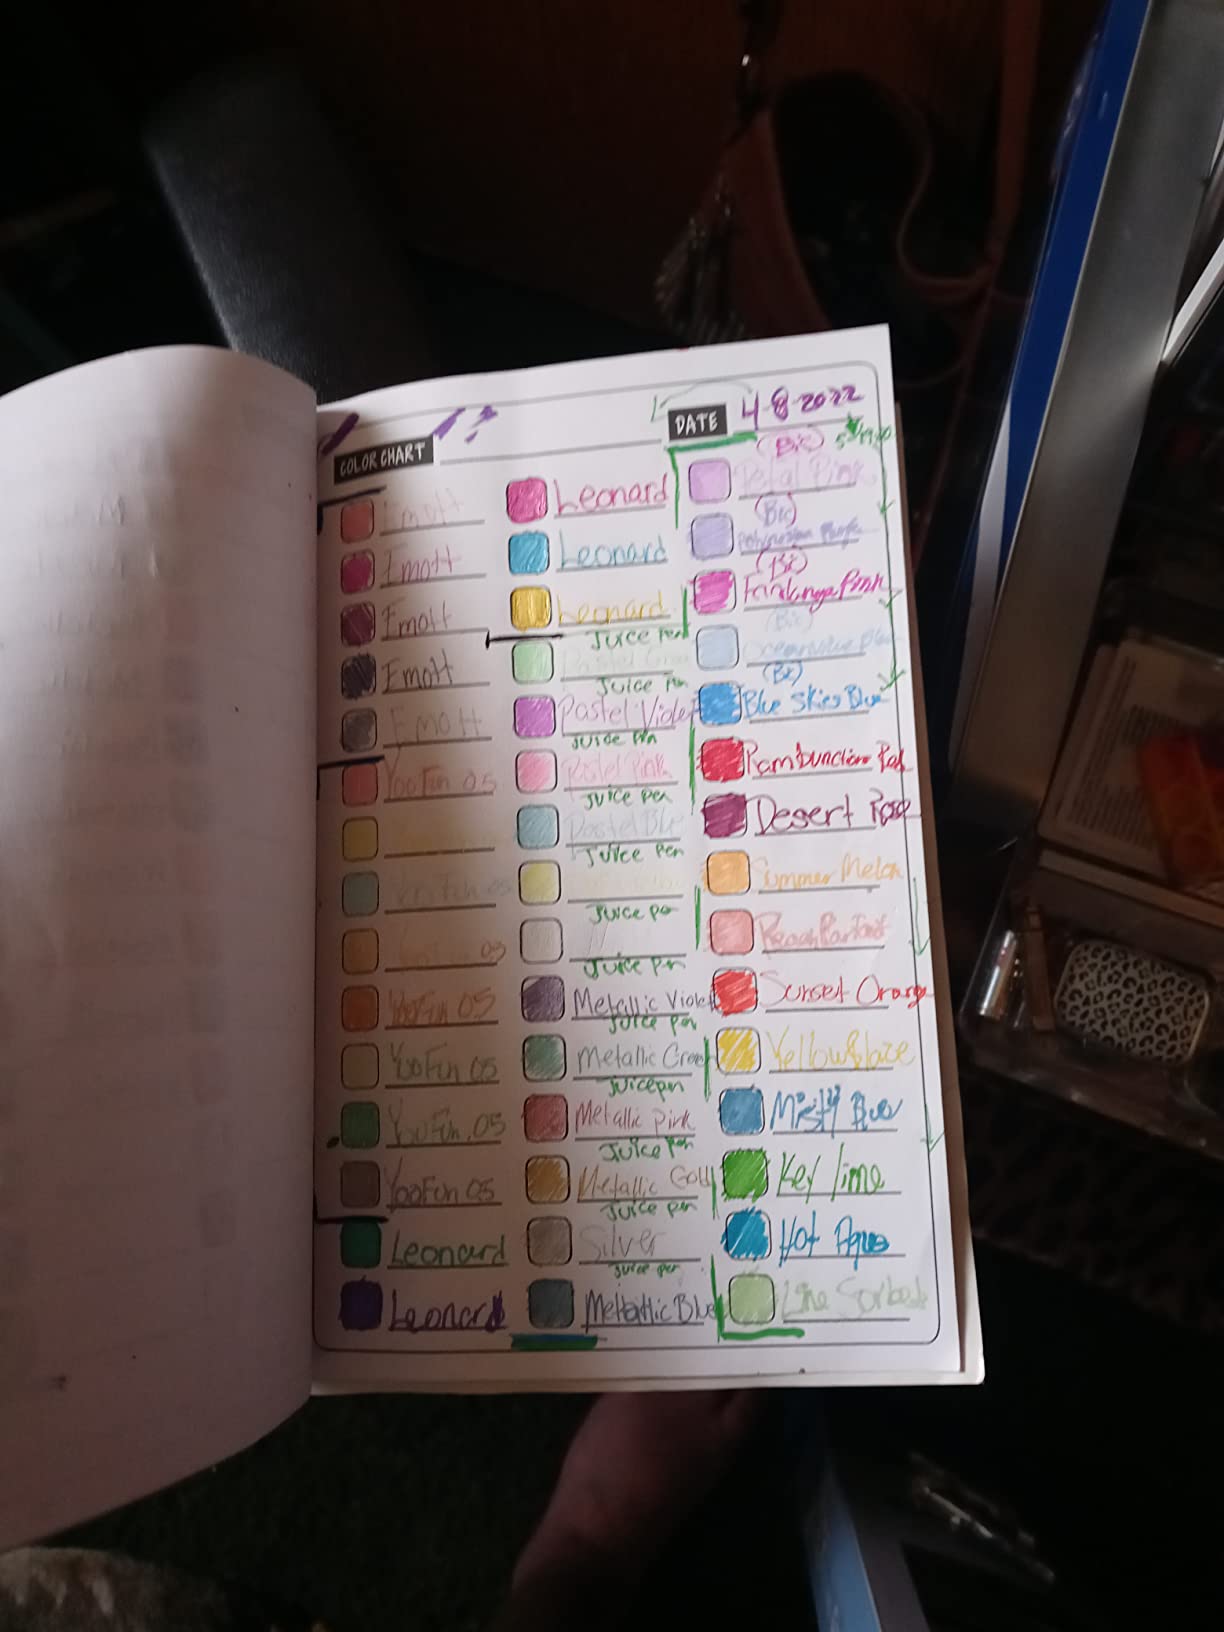 DATE 4-8-2022
COLOR CHART
Emott
Emott
Emott
Emott
Emott
YooFun 05
05
YooFun 05
YooFun 05
YooFun .05
YooFun 05
Leonard
Leonard
Leonard
Leonard
Leonard
Juice Pen
Pastel
Juice Pen
Pastel Violet
Juice Pen
Pastel Pink
Juice Pen
Pastel Blu
Juice Pen
Juice Pen
Juice Pen
Metallic Violet
Juice Pen
Metallic Green
Juice pen
Metallic Pink
Juice Pen
Metallic Gold
Juice pen
Silver
Juice pen
Metattic Blue
(Bic)
Petal Pink
(Bic)
Polynesian Purple
(Bic)
Fandango Pink
(Bic)
(Bic)
Blue Skies Blue
Rambunction Red
Desert Rose
Summer Melon
Peach Parfait
Sunset Orange
Yellow Blaze
Misty Blue
Key lime
Hot Aqua
Lime Sorbet